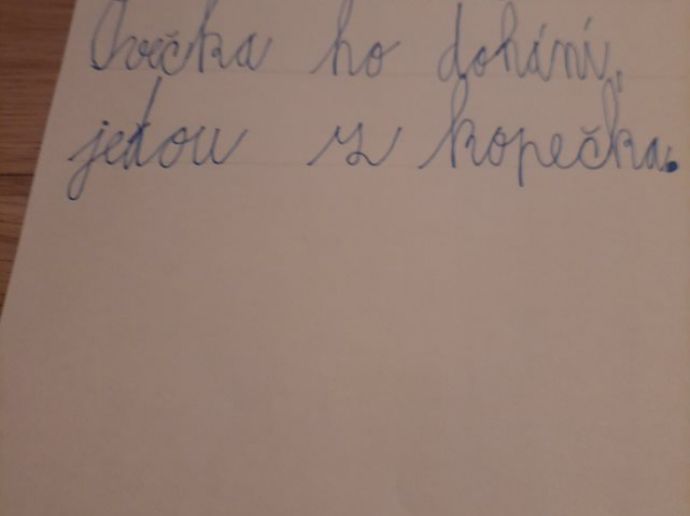 Ovečka ho dohání,
jedou z kopečka.